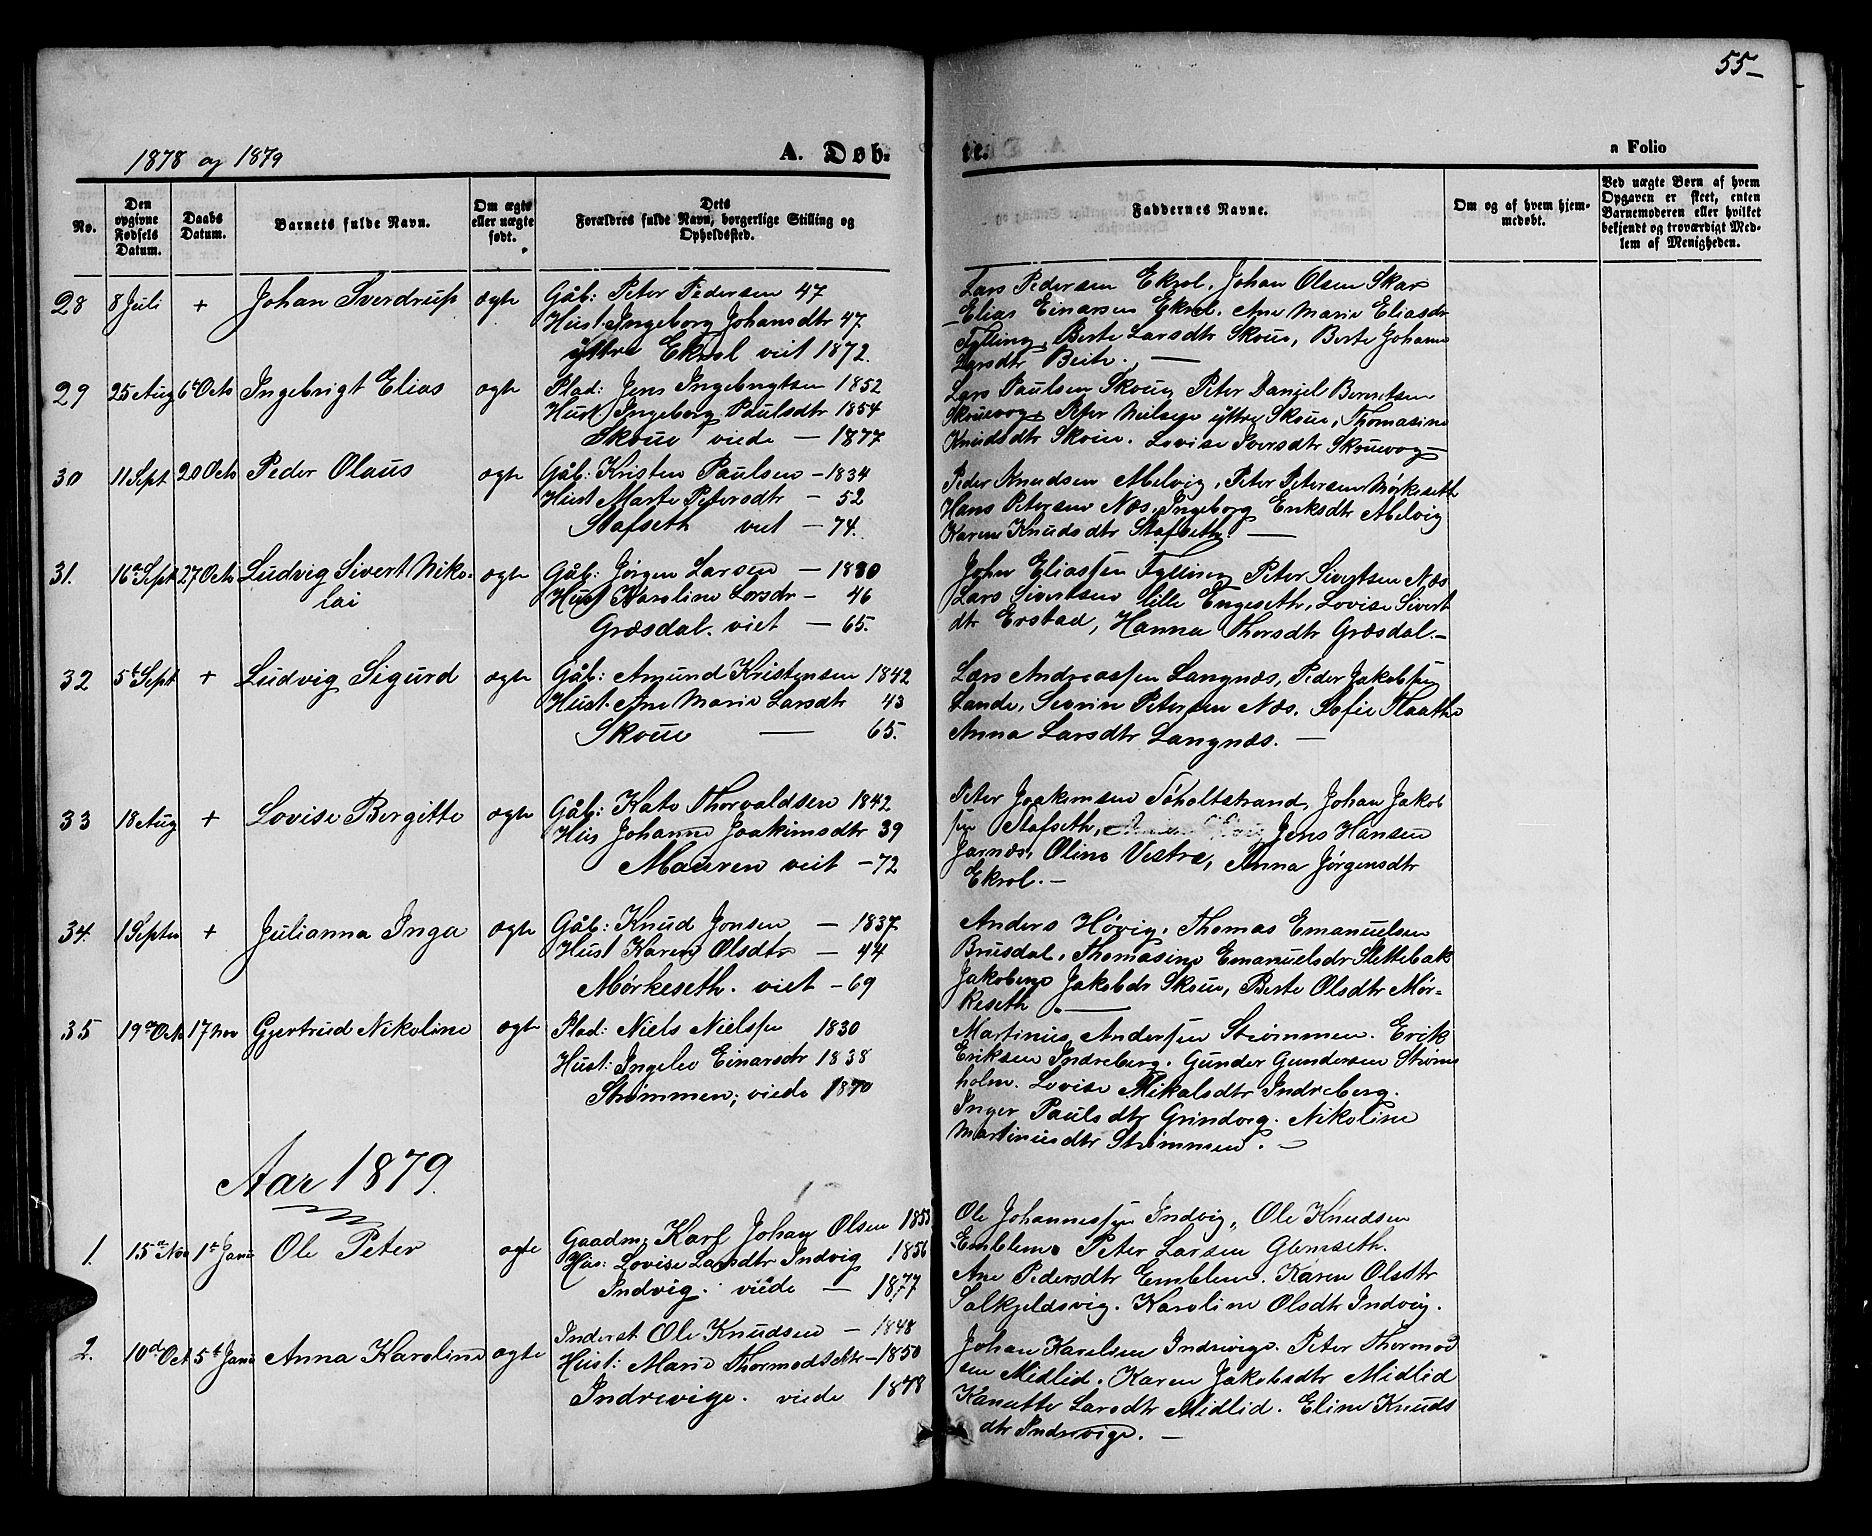 55–
1878 og 1879
A. Døb-
te.
a Folio
No.
Den opgivne Fødsels Datum.
Daabs Datum.
Barnets fulde Navn.
Om ægte eller uægte født.
Dets Forældres fulde Navn, borgerlige Stilling og Opholdssted.
Faddernes Navne.
Om og af hvem hjemmedøbt.
Ved uægte Børn af hvem Opgaven er skeet, enten Barnemoderen eller hvilket bekjendt og troværdigt Medlem af Menigheden.
28 8 Juli + Johan Sverdrup ægte Gåb: Peter Pedersen 47
Hust. Ingeborg Johansdtr 47
yttre Ekrol viet 1872.
Lars Pedersen Ekrol, Johan Olsen Skar
Elias Einarsen Ekrol. Ane Marie Eliasdr
Fylling, Berte Larsdtr Skoue, Berte Johanne
Larsdtr Beite. —
29 25 Aug 6 Octo Ingebrigt Elias ægte Plad: Jens Ingebrigtsen 1852
Hust Ingeborg Paulsdtr 1854
Skoue viede — 1877
Lars Paulsen Skoue, Peter Daniel Berentsen
Skouevog, Peter Nielsen yttre Skoue, Thomasine
Knudsdtr Skoue. Lovise Iversdtr Skouevog —
30 11 Sept 20 Octo Peder Olaus ægte Gåb: Kristen Paulsen — 1834
Hust Marte Petersdtr — 52
Stafseth viet — 74.
Peder Knudsen Melvig, Peter Petersen Mørkeseth
Hans Petersen Næs, Ingeborg Eriksdtr Melvig
Karen Knudsdtr Stafseth. —
31. 16 Sept 27 Octo Ludvig Sivert Niko-
lai
ægte Gåb: Jørgen Larsen — 1830
Hust Karoline Larsdr — 46
Græsdal. viet — 65.
John Eliassen Fylling, Peter Sivertsen Næs
Lars Sivertsen lille Engeseth, Lovise Sivert
dtr Erstad, Hanna Thorsdtr Græsdal. —
32 5t Sept + Ludvig Sigurd ægte Gåb: Amund Kristensen 1842
Hust. Ane Marie Larsdtr 43
Skoue — 65.
Lars Andreassen Langnæs, Peder Jakobsen
Lande, Severin Petersen Næs. Sofie Flaathe
Anna Larsdtr Langnæs. —
33 18 Aug + Lovise Bergitte ægte Gåb: Kato Thorvaldsen 1842
Hus Johanne Joakimsdtr 39
Mauren viet — 72
Peter Joakimsen Søholtstrand, Johan Jakob
sen Stafseth, Jens Hansen
Jarnæs, Oline Vestre, Anna Jørgensdtr
Ekrol. —
34. 1 Septer + Julianna Inga ægte Gåb: Knud Jonsen — 1837
Hust Karen Olsdtr — 44
Mørkeseth. viet — 69
Anders Høvig, Thomas Emanuelsen
Brusdal, Thomasine Emanuelsdr Slettebak
Jakobine Jakobdr Skoue, Berte Olsdtr Mør-
keseth. —
35 19 Oct 17 Nov Gjertrud Nikoline ægte Plad: Niels Nielsen 1830
Hust: Ingelev Einarsdr 1838
Strømmen; viede 1870
Martinus Andersen Strømmen. Erik
Eriksen Indreberg. Gunder Gundersen Strøms
holm. Lovise Mikalsdtr Indreberg.
Inger Paulsdtr Grindorg. Nikoline
Martinusdtr Strømmen. —
Aar 1879.
1. 15 Nov 1t Janu Ole Peter ægte Gaadm. Karl Johan Olsen 1853
Hus: Lovise Larsdtr Indvig 1856
Indvig. viede — 1877
Ole Johannessen Indvig, Ole Knudsen
Emblem. Peter Larsen Glemseth.
Ane Pedersdtr Emblem. Karen Olsdtr
Salkjeldsvig. Karoline Olsdtr Indvig.
2. 10d Oct 5t Janu Anna Karoline ægte Inderst Ole Knudsen — 1848
Hust: Marie Thormodsdtr — 1850
Indrevige. viede 1878
Johan Karelsen Indrevige. Peter Thormod
sen Midlid. Karen Jakobsdtr Midlid
Kanutte Larsdtr Midlid. Eline Knuds
dtr Indrevige. —